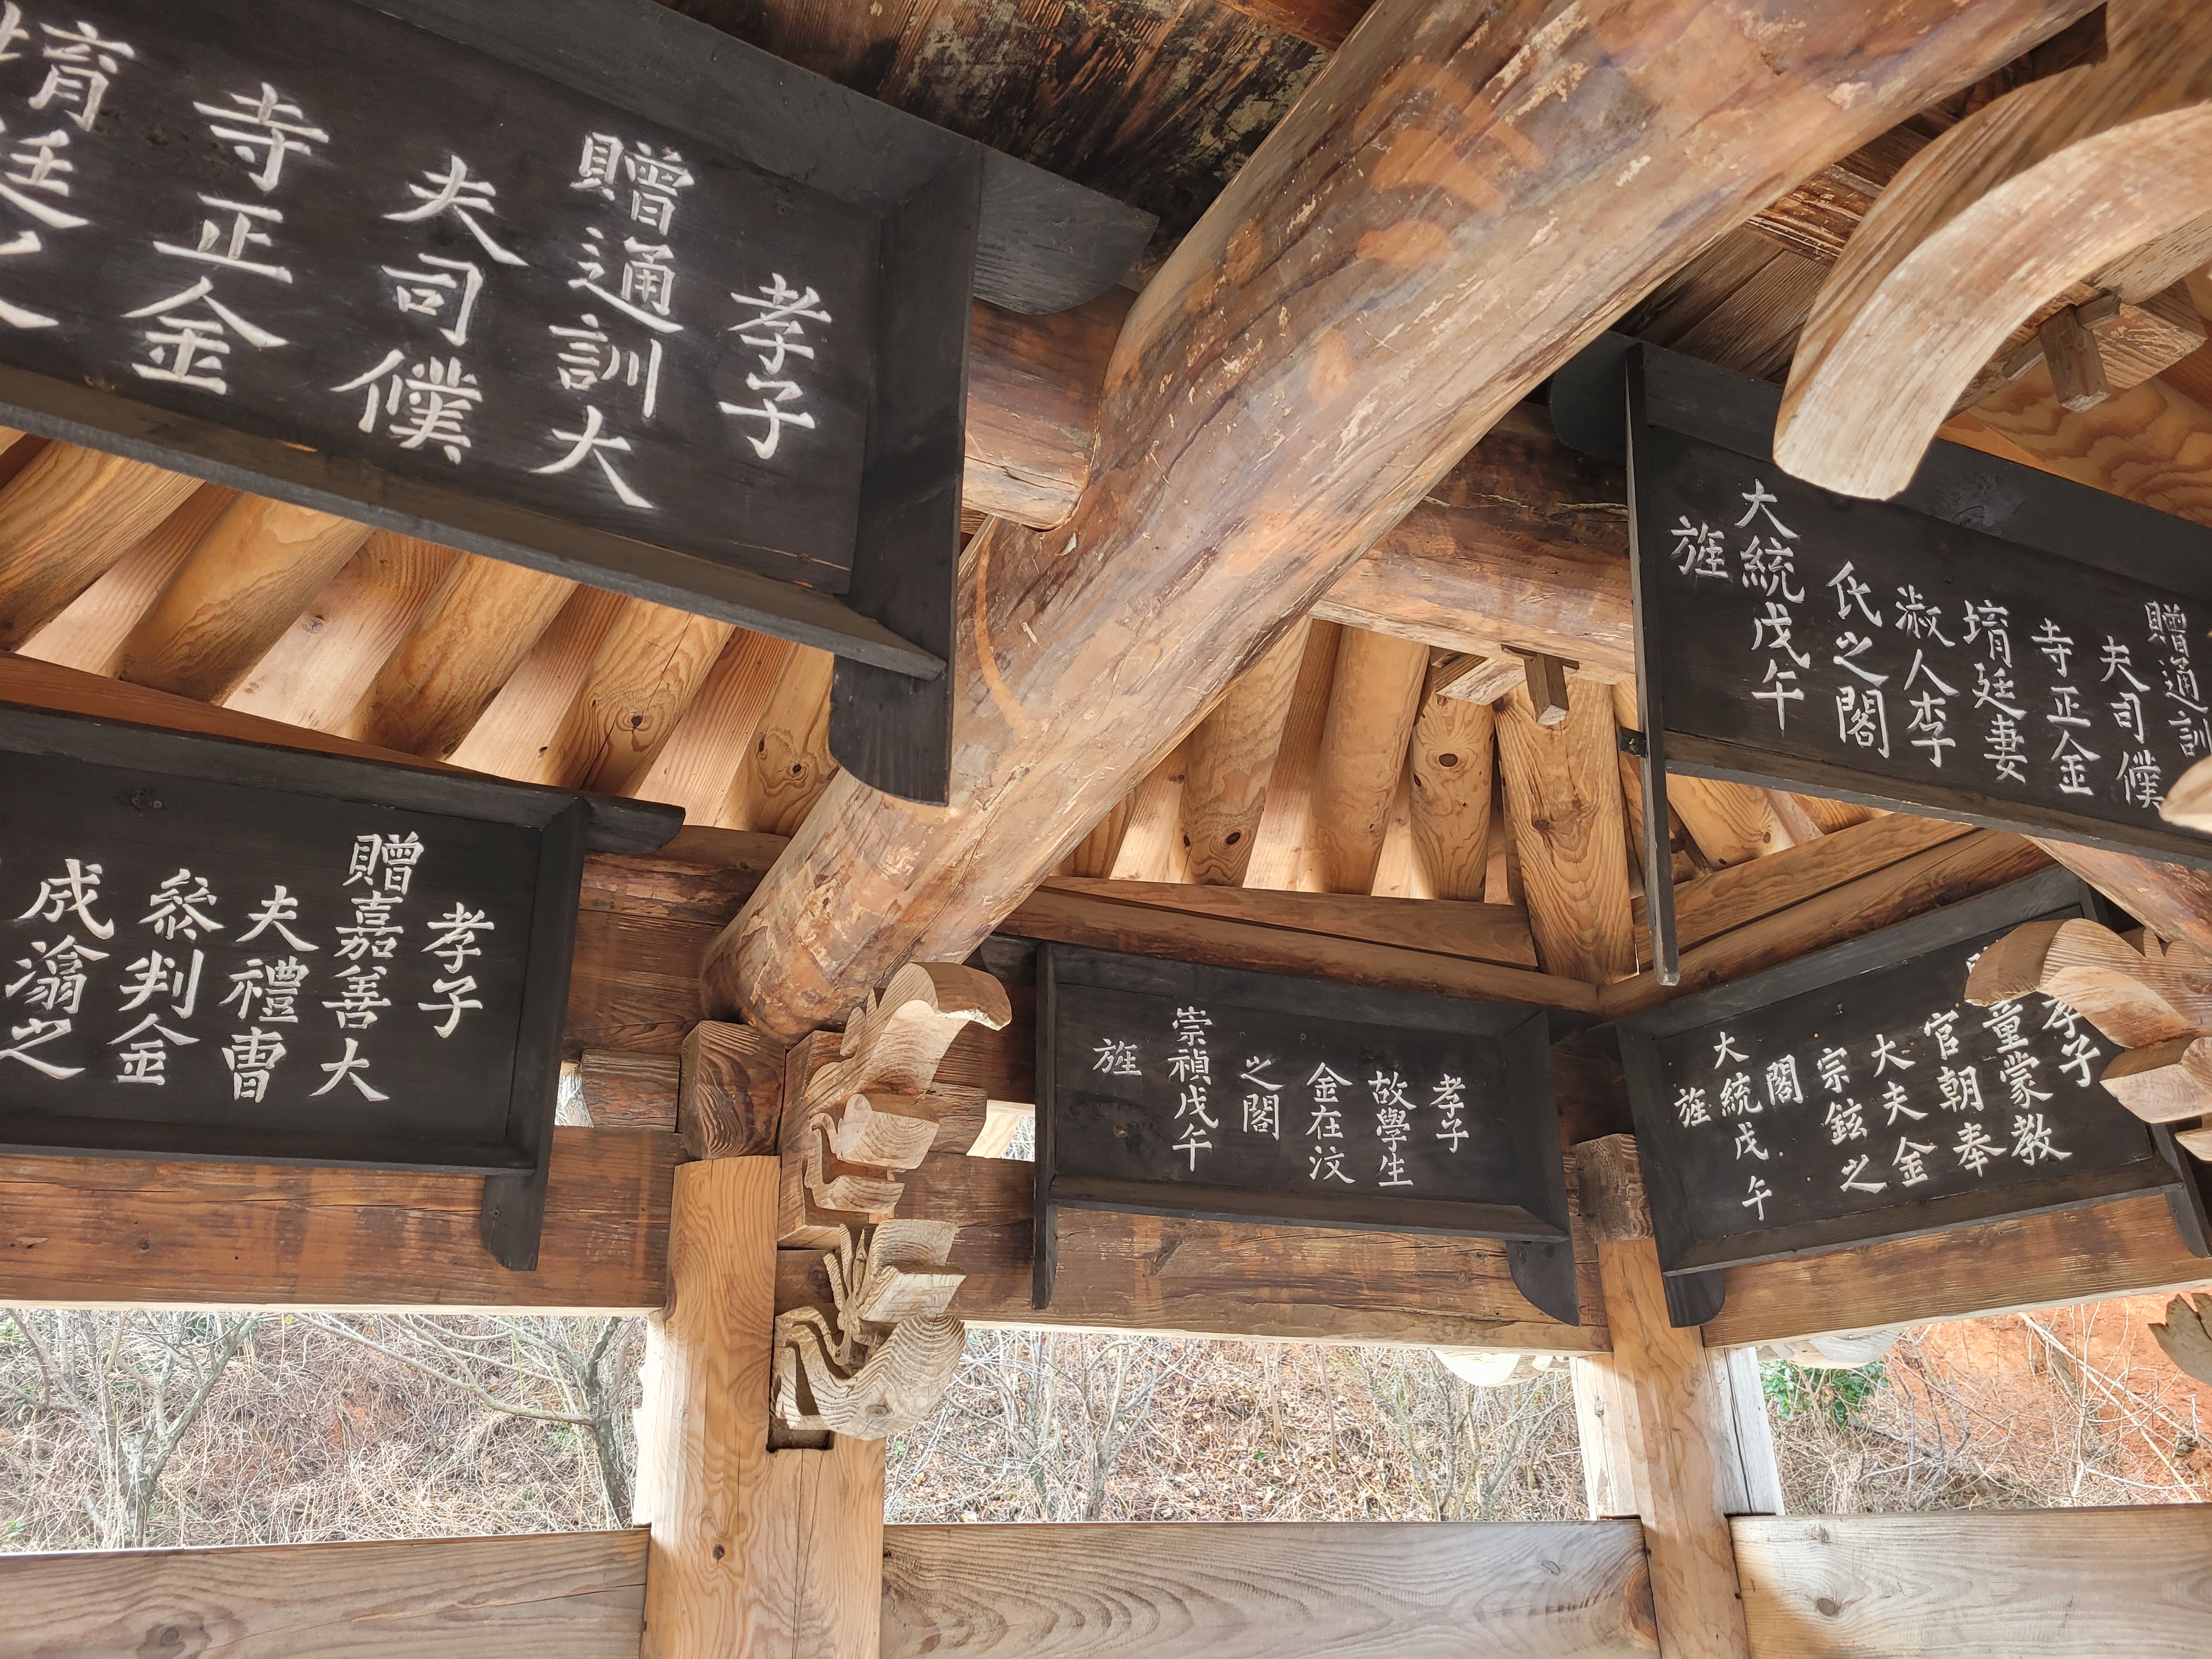 孝子
贈通訓大
夫司僕
寺正金
堉廷之
孝子
贈嘉善大
夫禮曹
參判金
成滃之
孝子
故學生
金在汶
之閣
崇禎戊午
旌
贈通訓
夫司僕
寺正金
堉廷妻
淑人李
氏之閣
大統戊午
旌
孝子
童蒙教
官朝奉
大夫金
宗鉉之
閣
大統戊午
旌